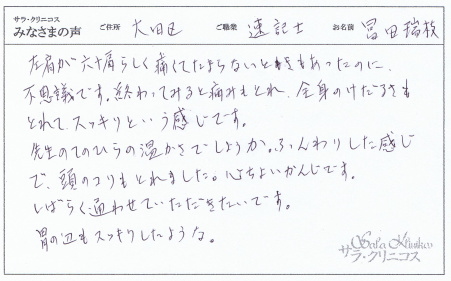 サラ・クリニコス
みなさまの声
ご住所 大田区 ご職業 速記士 お名前 冨田瑞枝
左肩が六十肩らしく痛くてたまらないときもあったのに、
不思議です。終わってみると痛みもとれ、全身のけだるさも
とれて、スッキリという感じです。
先生のてのひらの温かさでしょうか。ふんわりした感じ
で、頭のコリもとれました。心ちよいかんじです。
しばらく通わせていただきたいです。
胃の辺もスッキリしたような。
Sala Klinikos
サラ・クリニコス